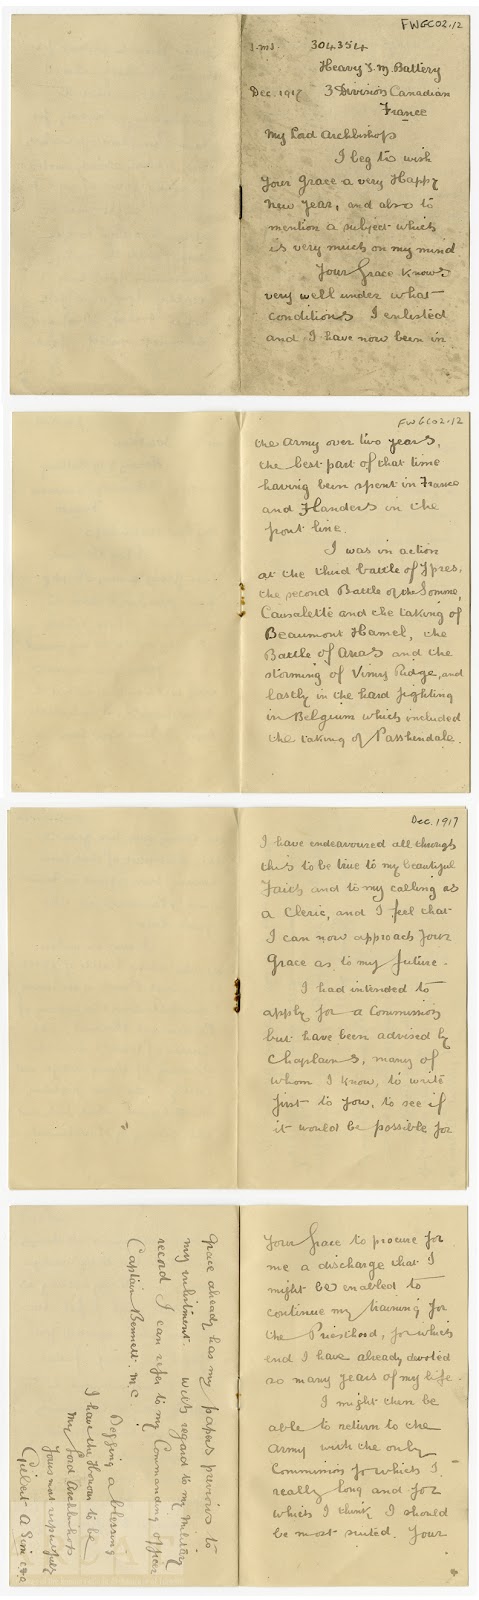 FWGC02.12
304354
Heavy T. M. Battery
Dec. 1917 3 Division Canadian
France
My Lord Archbishop
I beg to wish
Your Grace a very Happy
New Year, and also to
mention a subject which
is very much on my mind
Your Grace knows
very well under what
conditions I enlisted
and I have now been in
FWGC02.12
the Army over two years,
the best part of that time
having been spent in France
and Flanders in the
front line.
I was in action
at the third battle of Ypres,
the second Battle of the Somme,
Causalette and the taking of
Beaumont Hamel, the
Battle of Aras and the
storming of Vimy Ridge, and
lastly in the hard fighting
in Belgium which included
the taking of Passhendale.
Dec. 1917
I have endeavoured all through
this to be true to my beautiful
Faith and to my calling as
a Cleric, and I feel that
I can now approach Your
Grace as to my future.
I had intended to
apply for a Commission
but have been advised by
Chaplains, many of
whom I know, to write
first to You, to see if
it would be possible for
Your Grace to procure for
me a discharge that I
might be enabled to
continue my training for
the Priesthood, for which
end I have already devoted
so many years of my life.
I might then be
able to return to the
Army with the only
Commission for which I
really long and for
which I think I should
be most suited. Your
Grace already has my papers previous to
my enlistment. With regard to my Military
record I can refer to my Commanding officer
Captain Bennett. M.C
Begging a blessing
I have the Honour to be
My Lord Archbishop
Yours most respectfully
Gilbert A Sim